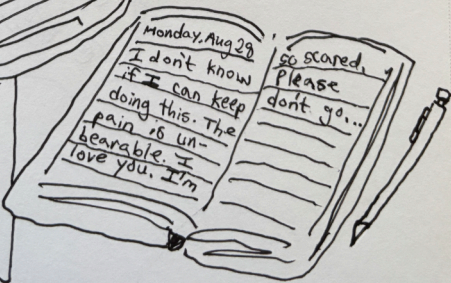 Monday, Aug 28
I don't know
if I can keep
doing this. The
pain is un-
bearable. I
love you. I'm
so scared.
Please
don't go...